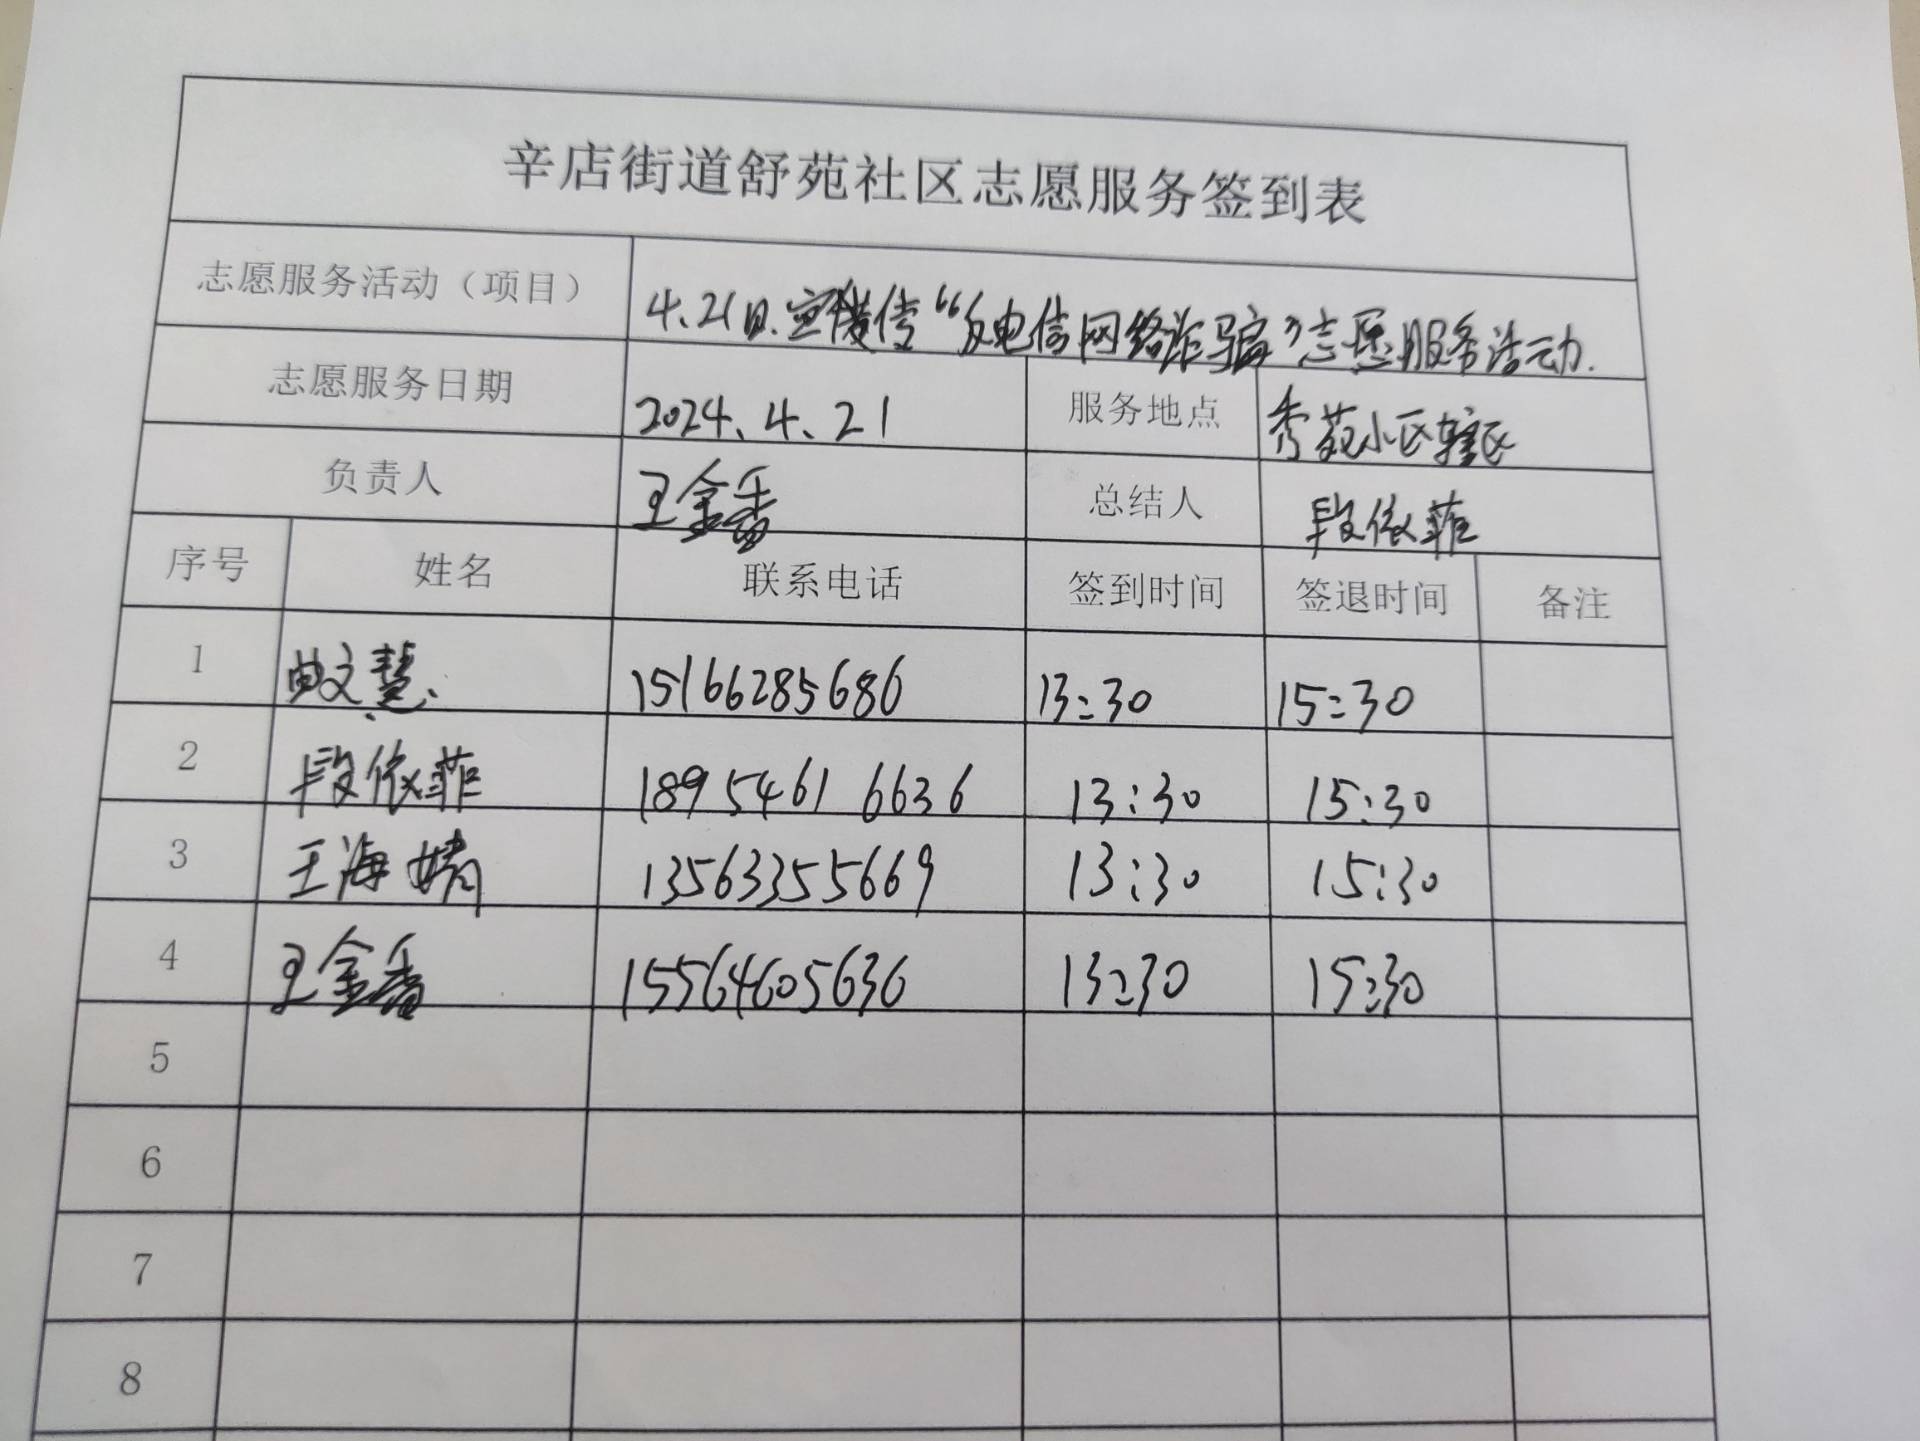 辛店街道舒苑社区志愿服务签到表
志愿服务活动（项目） 4.21日.宣传“反电信网络诈骗”志愿服务活动.
志愿服务日期 2024、4、21 服务地点 秀苑小区辖区
负责人 王金香 总结人 段依菲
序号 姓名 联系电话 签到时间 签退时间 备注
1 曲文慧 15166285686 13:30 15:30
2 段依菲 18954616636 13:30 15:30
3 王海婧 13563355669 13:30 15:30
4 王金香 15564605636 13:30 15:30
5
6
7
8